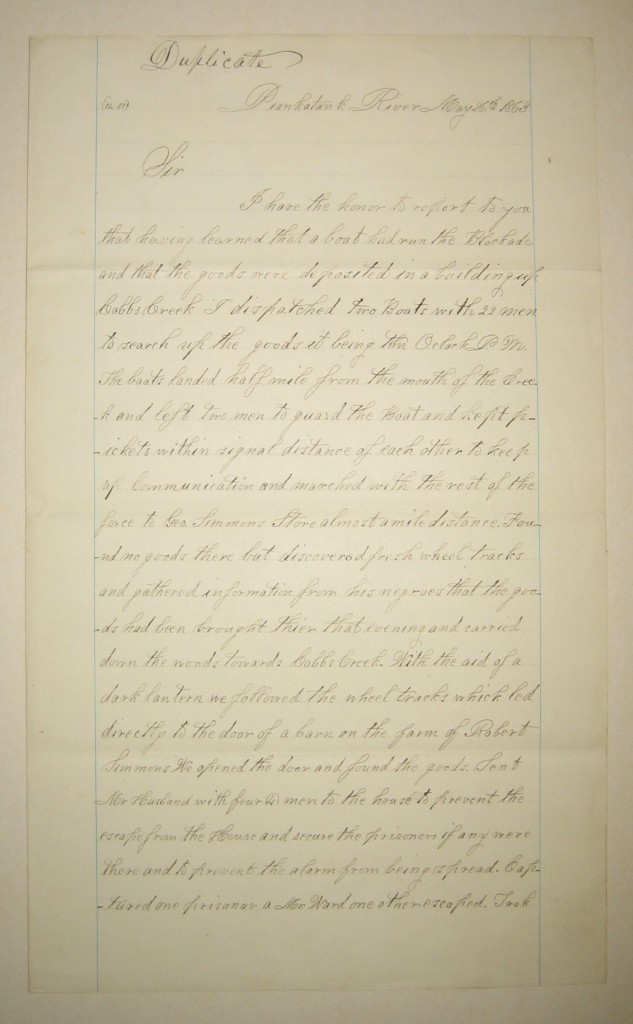 Duplicate
Piankatank River May 26th 1863
Sir
I have the honor to report to you
that having learned that a boat had run the Blockade
and that the goods were deposited in a building up
Cobbs Creek I dispatched two Boats with 22 men
to search up the goods it being Oclock P M.
The boats landed half mile from the mouth of the Cree-
-k and left two men to guard the Boat and kept p-
-ickets within signal distance of each other to keep
up Communication and marched with the rest of the
force to Geo. Simmons Store almost a mile distance. Fou-
-nd no goods there but discovered fresh wheel tracks
and gathered information from his negroes that the goo-
-ds had been brought thier that evening and carried
down the woods towards Cobbs Creek. With the aid of a
dark lantern we followed the wheel tracks which led
directly to the door of a barn on the farm of Robert
Simmons We opened the door and found the goods. Sent
Mr Husband with four men to the house to prevent the
escape from the House and secure the prisoners if any were
there and to prevent the alarm from being spread. Cap-
-tured one prisonar a Mr. Ward one other escaped. Took